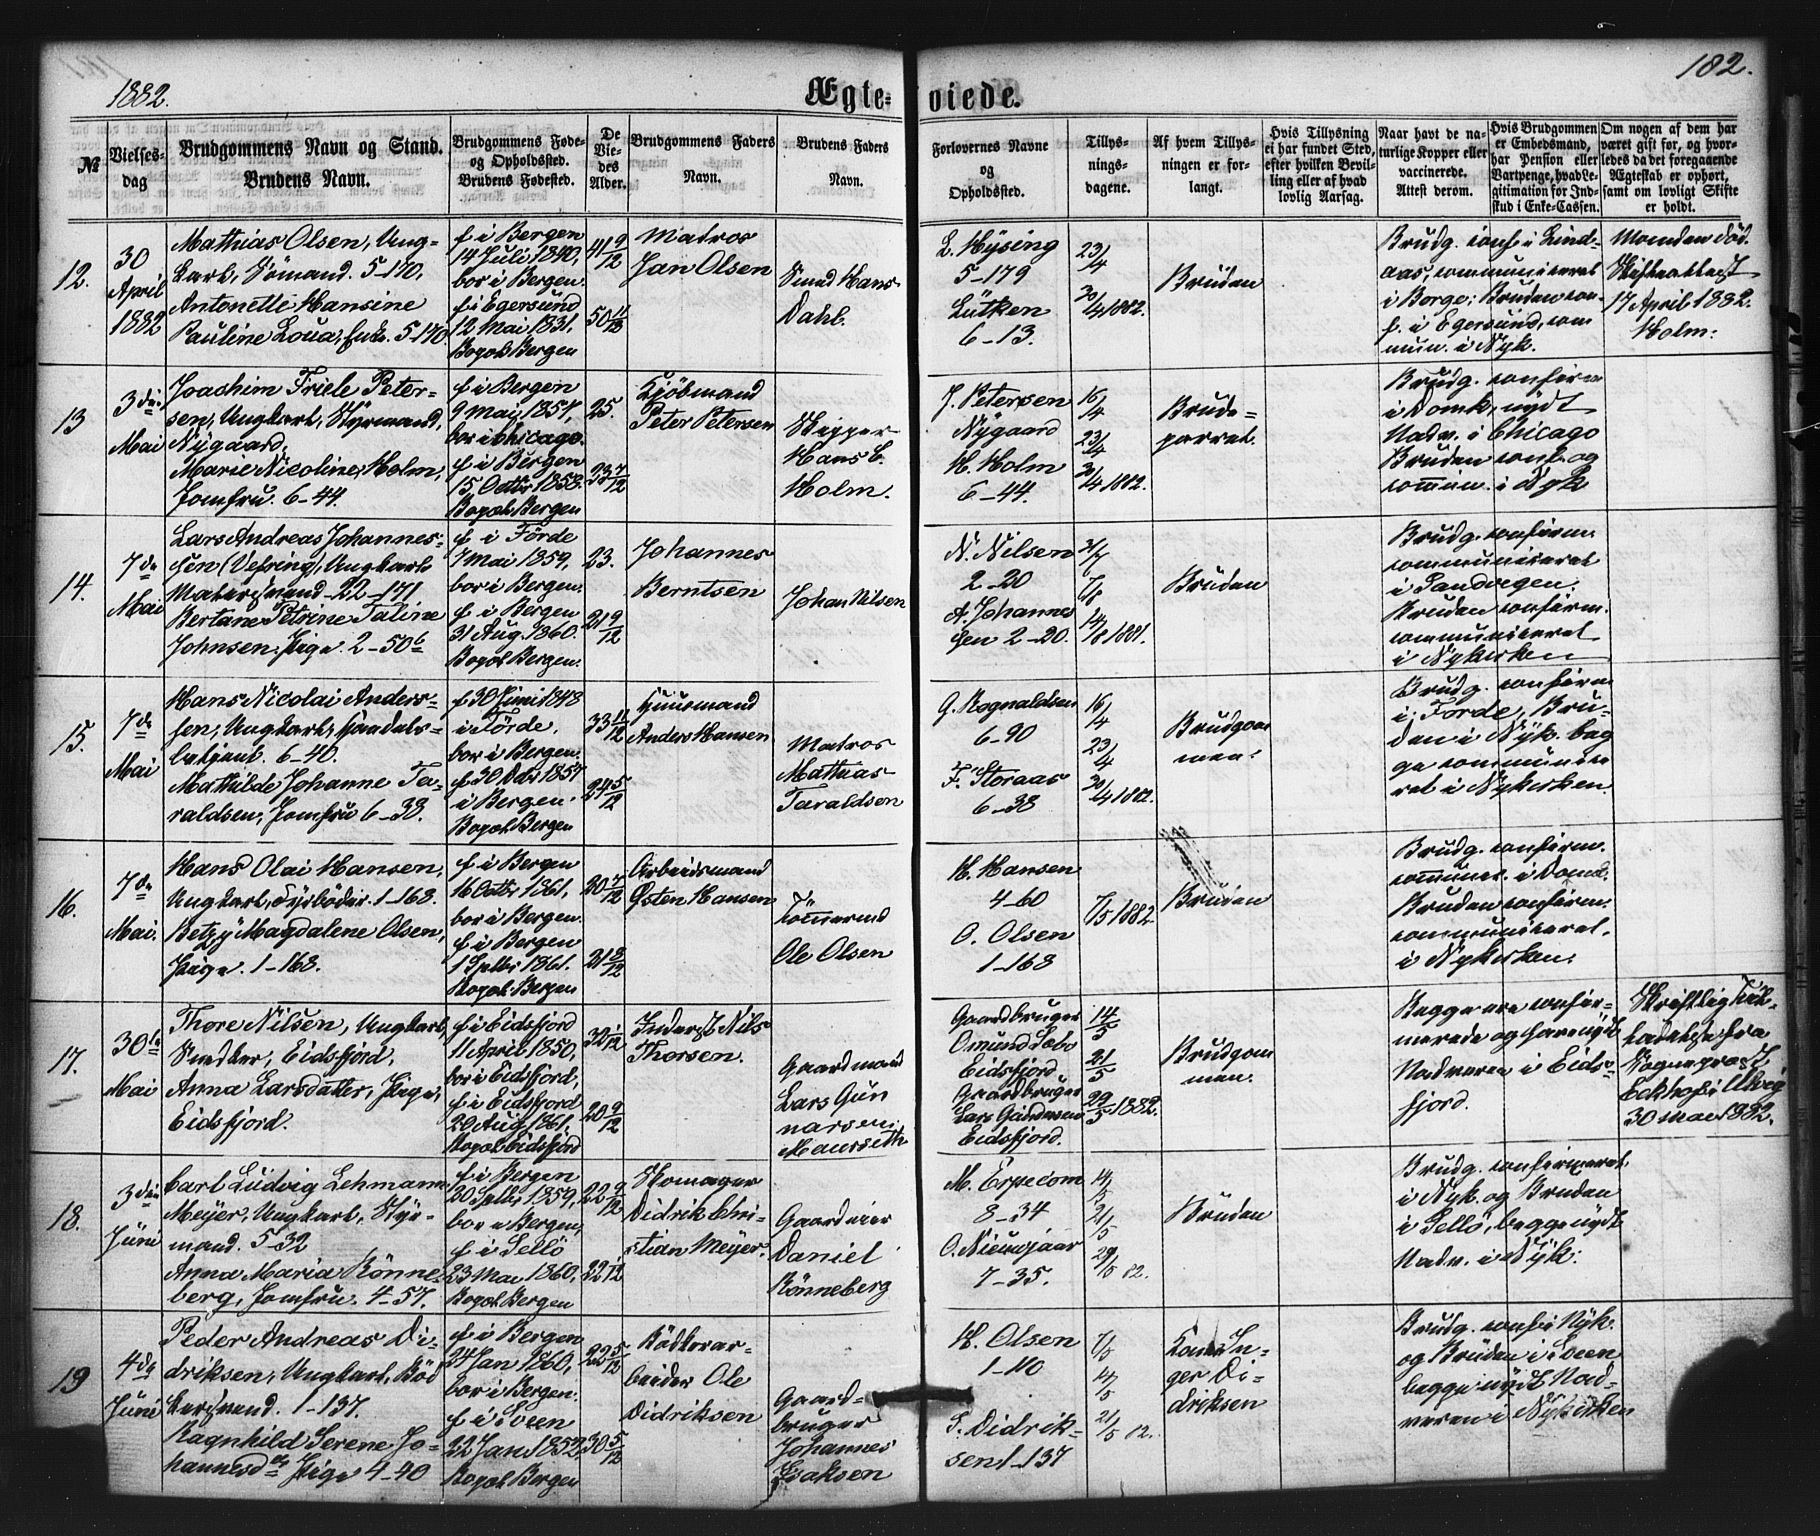 1882.
Ægte-viede.
182.
№
Vielses-
dag
Brudgommens Navn og Stand.
Brudens Navn.
Brudgommens Føde-
og Opholdssted.
Brudens Fødested.
De
Vie-
des
Alder.
Brudgommens Faders
Navn.
Brudens Faders
Navn.
Forlovernes Navne
og
Opholdssted.
Tillys-
nings-
dagene.
Af hvem Tillys-
ningen er for-
langt.
Hvis Tillysning
ei har fundet Sted,
efter hvilken Bevil-
ling eller af hvad
lovlig Aarsag.
Naar havt de na-
turlige Kopper eller
vaccinerede.
Attest derom.
Hvis Brudgommen
er Embedsmand,
har Pension eller
Vartpenge, hvad Le-
gitimation for Ind-
skud i Enke-Cassen.
Om nogen af dem har
været gift før, og hvor-
ledes da det foregaaende
Ægteskab er ophørt,
samt om lovligt Skifte
er holdt.
12.
30
April
1882
Mathias Olsen, Ung-
karl, Sömand. 5-170.
Antonette Hansine
Pauline Loua, Enke. 5-170.
f. i Bergen
14 Juli 1840,
bor i Bergen.
f. i Egersund
12 Mai 1831.
Bopæl Bergen
41 9/12
50 11/12
Matros
Jan Olsen
Smed Hans
Dahl.
L. Hysing
5-179
Lütken
6-13.
23/4
30/4 1882.
Bruden
Brudg. conf. i Lind-
aas, communiceret
i Borge; Bruden con-
f. i Egersund, com
mun. i Nyk.
Manden död.
Skifteattest
17 April 1882.
Holm:
13
3die
Mai
Joachim Friele Peter-
sen, Ungkarl, Styrmand,
Nygaard.
Marie Nicoline Holm,
Jomfru. 6-44.
f. i Bergen
9 Mai 1857,
bor i Chicago.
f. i Bergen
15 Octbr 1858.
Bopæl Bergen
25.
23 7/12
Kjöbmand
Peter Petersen
Skipper
Hans C.
Holm.
J. Petersen
Nygaard
H. Holm
6-44.
16/4
23/4
30/4 1882.
Brude-
parret.
Brudg. confirm
i Domk, nydt
Nadv. i Chicago
Bruden conf. og
commun. i Nyk
14.
7de
Mai
Lars Andreas Johannes-
sen (Vefring), Ungkarl
Maler svend 22-171
Bertane Petrine Taline
Johnsen, Pige. 2-50b
f. i Förde
7 Mai 1859,
bor i Bergen.
f. i Bergen
31 Aug. 1860.
Bopæl Bergen.
23.
21 9/12
Johannes
Berntsen
Johan Nilsen
N. Nilsen
2-20
A. Johannes
sen 2-20.
31/7
7/8
14/8 1881.
Bruden
Brudg. confirm.
communiceret
i Sandvigen.
Bruden confirm.
communiceret
i Nykirken
15.
7de
Mai
Hans Nicolai Anders-
sen, Ungkarl, Handels-
betjent. 6-40.
Mathilde Johanne Ta-
raldsen, Jomfru 6-38.
f. 30 Juni 1848
i Förde.
bor i Bergen.
f. 30 Octbr 1857
i Bergen.
Bopæl Bergen
33 11/12
24 5/12
Huusmand
Anders Hansen
Matros
Mathias
Taraldsen
G. Rognaldsen
6-90
F. Storaas
6-38
16/4
23/4
30/4 1882.
Brudgom
men:
Brudg. confirm
i Förde, Bru-
den i Nyk. beg
ge communice
ret i Nykirken.
16.
7de
Mai.
Hans Olai Hansen,
Ungkarl, Fyrböder. 1-168.
Betzy Magdalene Olsen,
Pige. 1-168.
f. i Bergen
16 Octbr 1861,
bor i Bergen.
f. i Bergen
1 Septbr 1861.
Bopæl Bergen
20 7/12
21 8/12
Arbeidsmand
Østen Hansen
Tömmermd
Ole Olsen
H. Hansen
4-60
O. Olsen
1-168
7/5 1882
Bruden
Brudg. confirm.
commun. i Domk.
Bruden confirm.
communiceret.
i Nykirken.
17.
30te
Mai
Thore Nilsen, Ungkarl,
Snedker, Eidsfjord,
Anna Larsdatter, Pige,
Eidsfjord.
f. i Eidsfjord
11 April 1850,
bor i Eidsfjord,
f. i Eidsfjord
20 Aug. 1861.
Bopæl Eidsfjord
32 1/12
20 9/12
Inderst Nils
Thorsen.
Gaardmand
Lars Gun
narsen
Maurseth
Gaardbruger
Omund Sæbo
Eidsfjord
Gaardbruger
Lars Gunnarsen
Eidsfjord.
14/5
21/5
29/5 1882.
Brudgom
men.
Begge ere confir-
merede og have nydt
Nadveren i Eids-
fjord.
Skriftlig Til-
ladelse fra
Sogneprest
Eckhof i Ulvig
30 Mai 1882.
18.
3die
Juni
Carl Ludvig Lehmann
Meyer, Ungkarl, Styr-
mand. 5-32
Anna Maria Rönne-
berg, Jomfru. 4-57.
f. i Bergen
20 Septbr 1859,
bor i Bergen,
f. i Sellö
23 Mai 1860,
Bopæl Bergen
22 9/12
22 1/12
Skomager
Didrik Chri-
stian Meyer.
Gaardeier
Daniel
Rönneberg
M. Erpecom
8-34
O. Nieuwjaar
7-35.
14/5
21/5
29/5 82.
Bruden
Brudg. confirmeret
i Nyk. og Bruden
i Sellö, begge nydt
Nadv. i Nyk:
19
4de
Juni
Peder Andreas Di-
driksen, Ungkarl, Böd
kersvend. 1-137.
Ragnhild Serene Jo-
hannesdtr Pige 4-40
f. i Bergen
24 Jan 1860,
bor i Bergen.
f. i Sveen
22 Jan 1852,
Bopæl Bergen
22 5/12
30 5/12
Bödkerar-
beider Ole
Didriksen
Gaard-
bruger
Johannes
Isaksen
H. Olsen
1-110
S. Didrik-
sen 1-137
7/5
14/5
21/5 82.
In-
ger Di-
driksen
Brudg. conf. i Nyk.
og Bruden i Sveen
begge nydt Nad-
veren i Nykirken